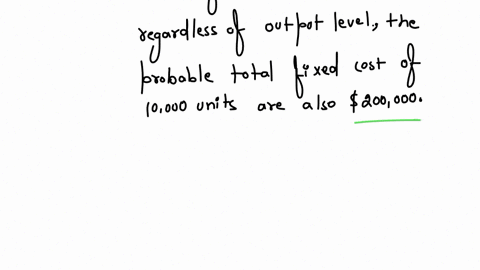 regardless of output level, the
probable total fixed cost of
10,000 units are also $200,000.